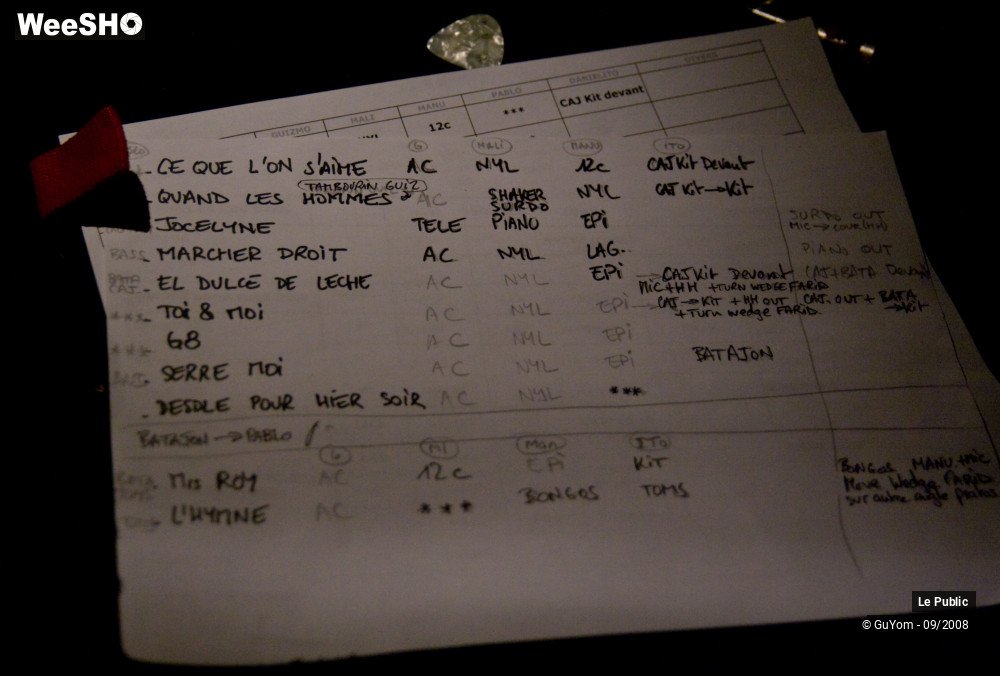 WeeSHO
GUIZMO MALI MANU PABLO DANIELITO DIVERS
12c *** CAJ Kit devant
G MALI MANU ITO
- CE QUE L'ON S'AIME AC NYL 12c CAJ Kit Devant
TAMBOURIN GUIZ
QUAND LES HOMMES AC SHAKER SURDO NYL CAJ Kit → Kit
JOCELYNE TELE PIANO EPi SURDO OUT
MARCHER DROIT AC NYL LAG. PIANO OUT
EL DULCE DE LECHE AC NYL EPi → CAJ Kit Devant CAJ+BATA Devant
MIC+HH +TURN WEDGE FARID
*** - TOi & MOi AC NYL EPi CAJ → KIT + HH OUT CAJ. OUT + BATA → Kit
+ Turn wedge FARID.
*** 68 AC NYL EPi
SERRE MOi AC NYL EPi BATAJON
- DESOLE POUR HIER SOIR AC NYL ***
BATAJON → PABLO
G Man ITO
Mrs ROY AC 12c EPi KiT BONGOS MANU + mic
Move Wedge FARID
L'HYMNE AC *** BONGOS TOMS sur autre angle
Le Public
© GuYom - 09/2008